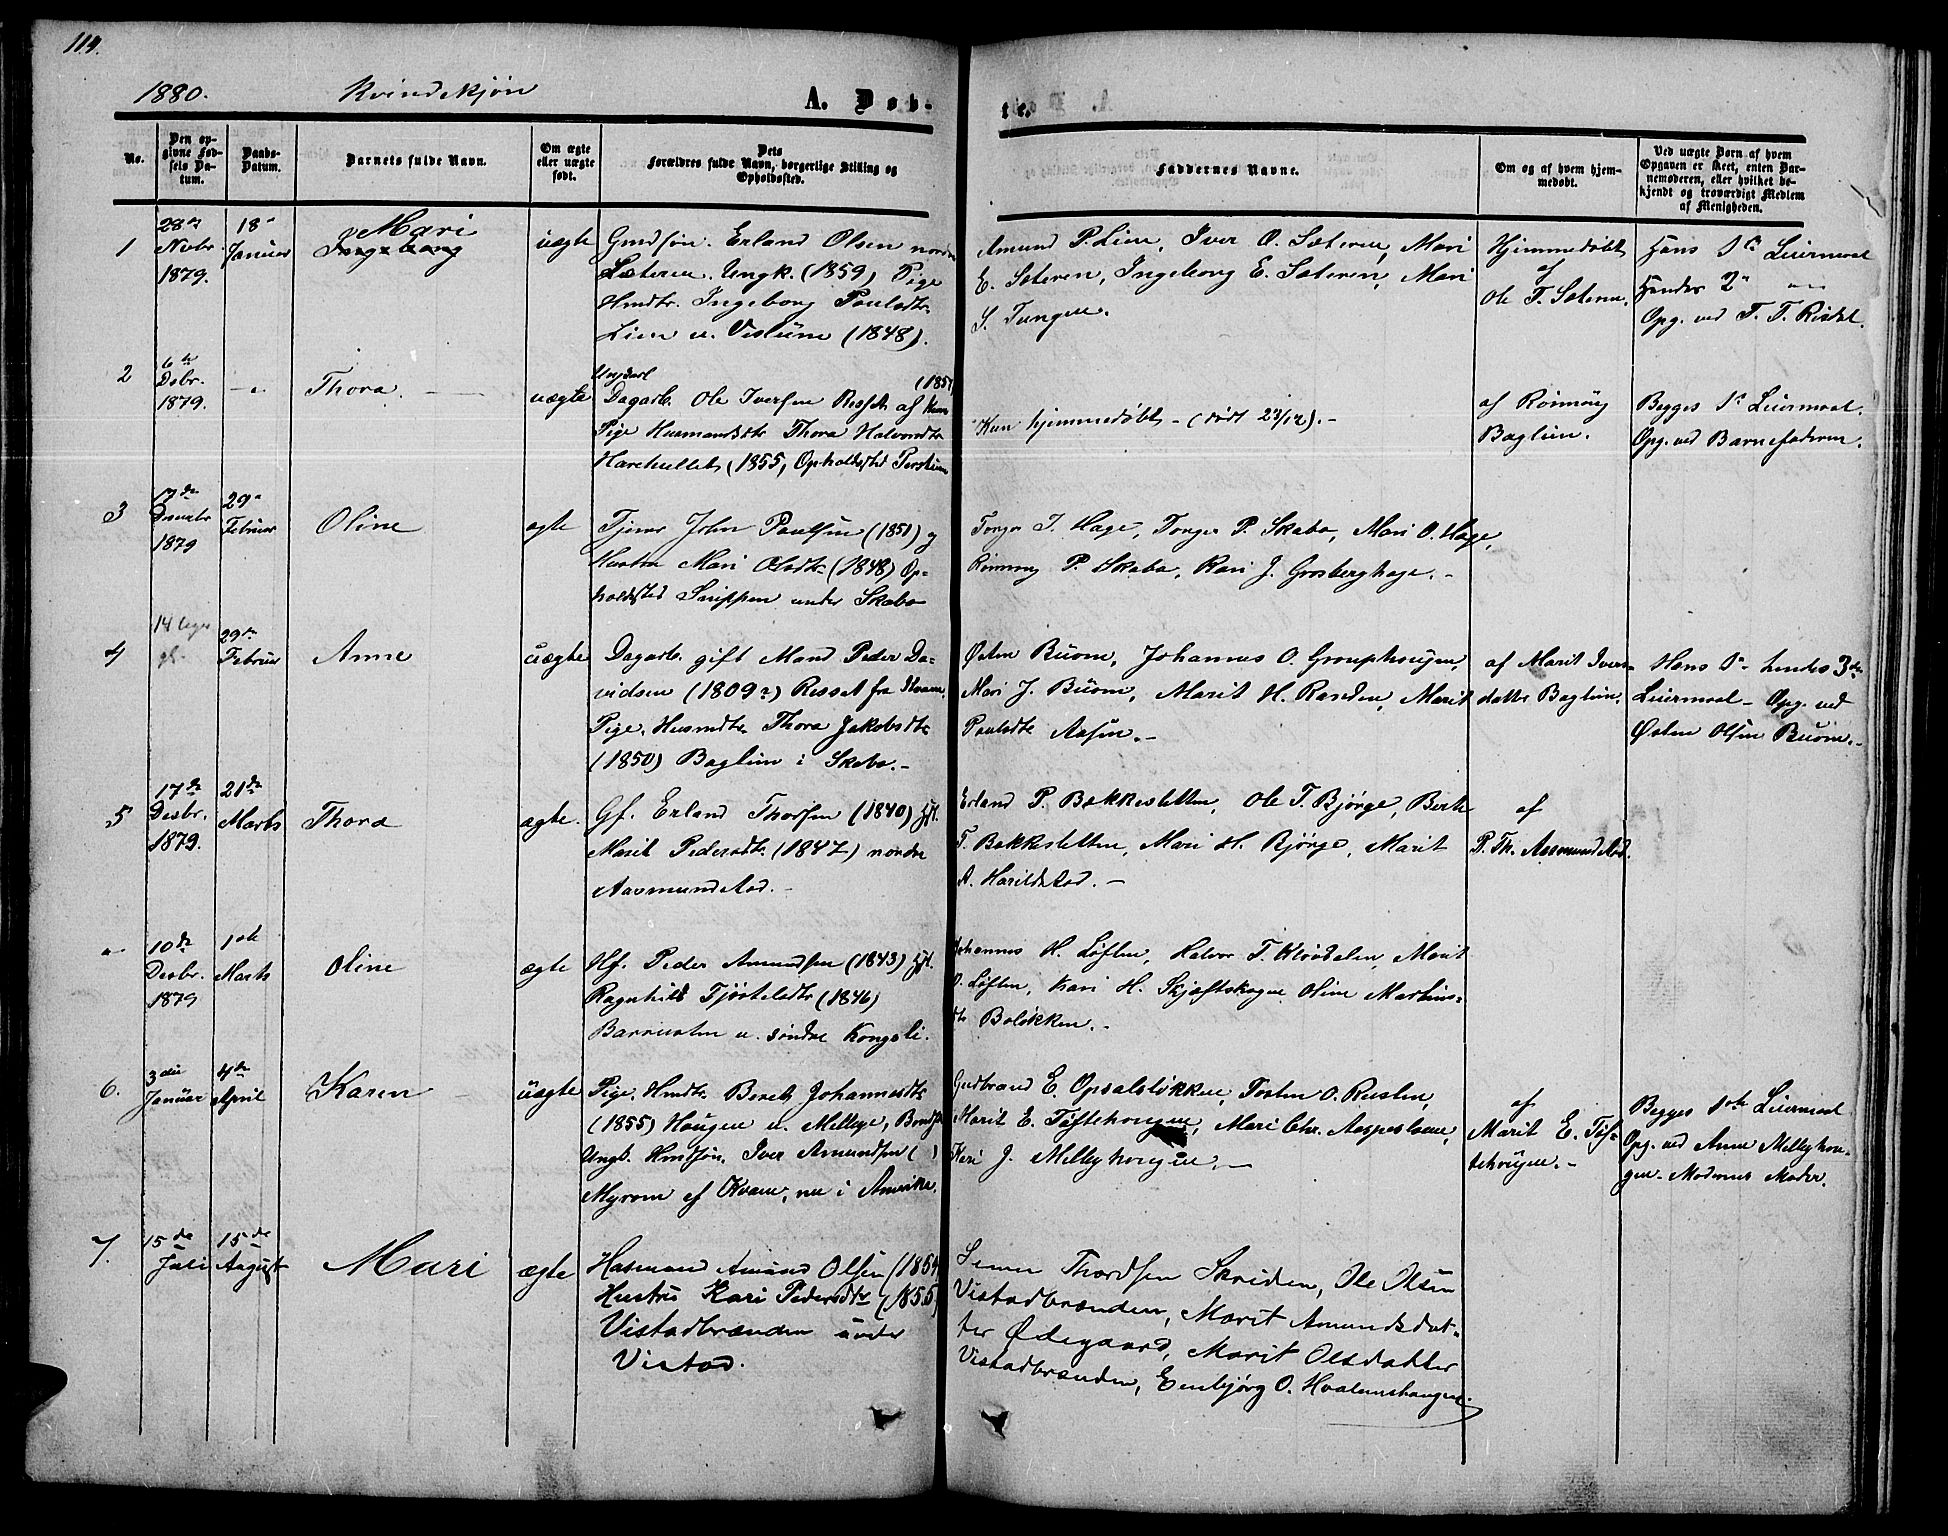 114.
1880. Kvindekjøn
A. Døb-
te.
No.
Den op-
givne Fød-
sels Da-
tum.
Daabs-
Datum.
Barnets fulde Navn.
Om ægte
eller uægte
født.
Dets
Forældres fulde Navn, borgerlige Stilling og
Opholdssted.
Faddernes Navne.
Om og af hvem hjem-
medøbt.
Ved uægte Børn af hvem
Opgaven er skeet, enten Bar-
nemoderen, eller hvilket be-
kjendt og troværdigt Medlem
af Menigheden.
1
28de
Novbr.
1879.
18
Januar
Mari
Ingeborg
uægte
Gmdsøn. Erland Olsen nordre
Sæteren. Ungk. (1859) Pige
Hmdtr. Ingeborg Paulsdtr.
Lien u. Vislüne (1848).
Amund P. Lien, Iver O. Sæteren, Mari
E. Sæteren, Ingeborg E. Sæteren, Mari
S. Tungen.
Hjemmedøbt
af
Ole T. Sæteren.
Hans 1ste Leiermaal
Hendes 2
Opg. ved T. T. Risdal.
2
6te
Debr.
1879.
Thora.
uægte
Ungkarl (1857
Dagarb. Ole Iversen Resset af Kvam
Pige Husmandsdtr Thora Halvorsdtr
Harehullet (1855, Opholdssted
Kun hjemmedøbt - (død 23/12). -
af Rønnoug
Baglien.
Begges 1ste Leiermaal.
Opg. ved Barnefaderen.
3
17de
Decebr
1879
29
Februar
Oline
ægte
Tjener John Paulsen (1850) og
Hustru Mari Olsdtr (1848) Op-
holdssted Snippen under Skabo
Torger J. Hage, Torger P. Skabo, Mari O. Hage,
Rønnoug P. Skabo, Kari J. Grosberghage. -
4
14 Uger
gl.
29de
Februar
Anne
uægte
Dagarb. gift Mand Peder Da-
vidsen (1809?) Resset fra Kvam,
Pige, Husmdtr. Thora Jakobsdtr
(1850) Baglien i Skabo. -
Østen Buom, Johannes O. Grouphougen,
Mari J. Buom, Marit H. Randen, Marit
Paulsdtr Aasen. -
af Marit Ivers-
datter Baglien.
Hans 1ste hendes 3die
Leiermaal - Opg. ved
Østen Olsen Buom. -
5
17de
Desbr.
1879.
21de
Marts
Thora
ægte.
Gf. Erland Thorsen (1840) Hst.
Marit Pedersdtr. (1847) nordre
Aasmundstad. -
Erland P. Bakkesletten, Ole T. Bjørge, Berte
T. Bakkesletten, Mari H. Bjørge, Marit
A. Harildstad. -
af
P. Th. Aasmundstad.
10de
Desbr.
1879
1ste
Marts
Oline
ægte
Hf. Peder Amundsen (1843) Hst.
Ragnhild Tjøstelsdtr (1846)
u. søndre Kongsli.
Johannes H. Løften, Halvor T. Klevdalen, Marit
O. Løften, Kari H. Skjæftskogen Oline Martins-
dtr Boløkken. -
6.
3die
Januar
4de
April
Karen
uægte
Pige, Hmdtr. Beret Johannesdtr
(1855) Haugen u. Melbye,
Ungk. Hmdsøn. Iver Amundsen ( )
Myrom af Kvam, nu i Amerika.
Gudbrand E. Opsalsløkken, Torsten O. Rusten,
Marit E. Toftehougen, Mari Chr. Aaspeslaaen,
Kari J. Melbyhougen. -
af
Marit E. Tof-
tehougen. -
Begges 1ste Leiermaal
Opg. ved Anne Melbyhou-
gen - Moderens Moder.
7.
15de
Juli
15de
August
Mari
ægte
Husmand Amund Olsen (1854
Hustru Kari Pedersdtr (1855)
Vistadbrænden under
Vistad.
Simen Thordsen Skriden, Ole Olsen
Vistadbrænden, Marit Amundsdat-
ter Ødegaard, Marit Olsdatter
Vistadbrænden, Embjørg O. Hvalemshaugen.